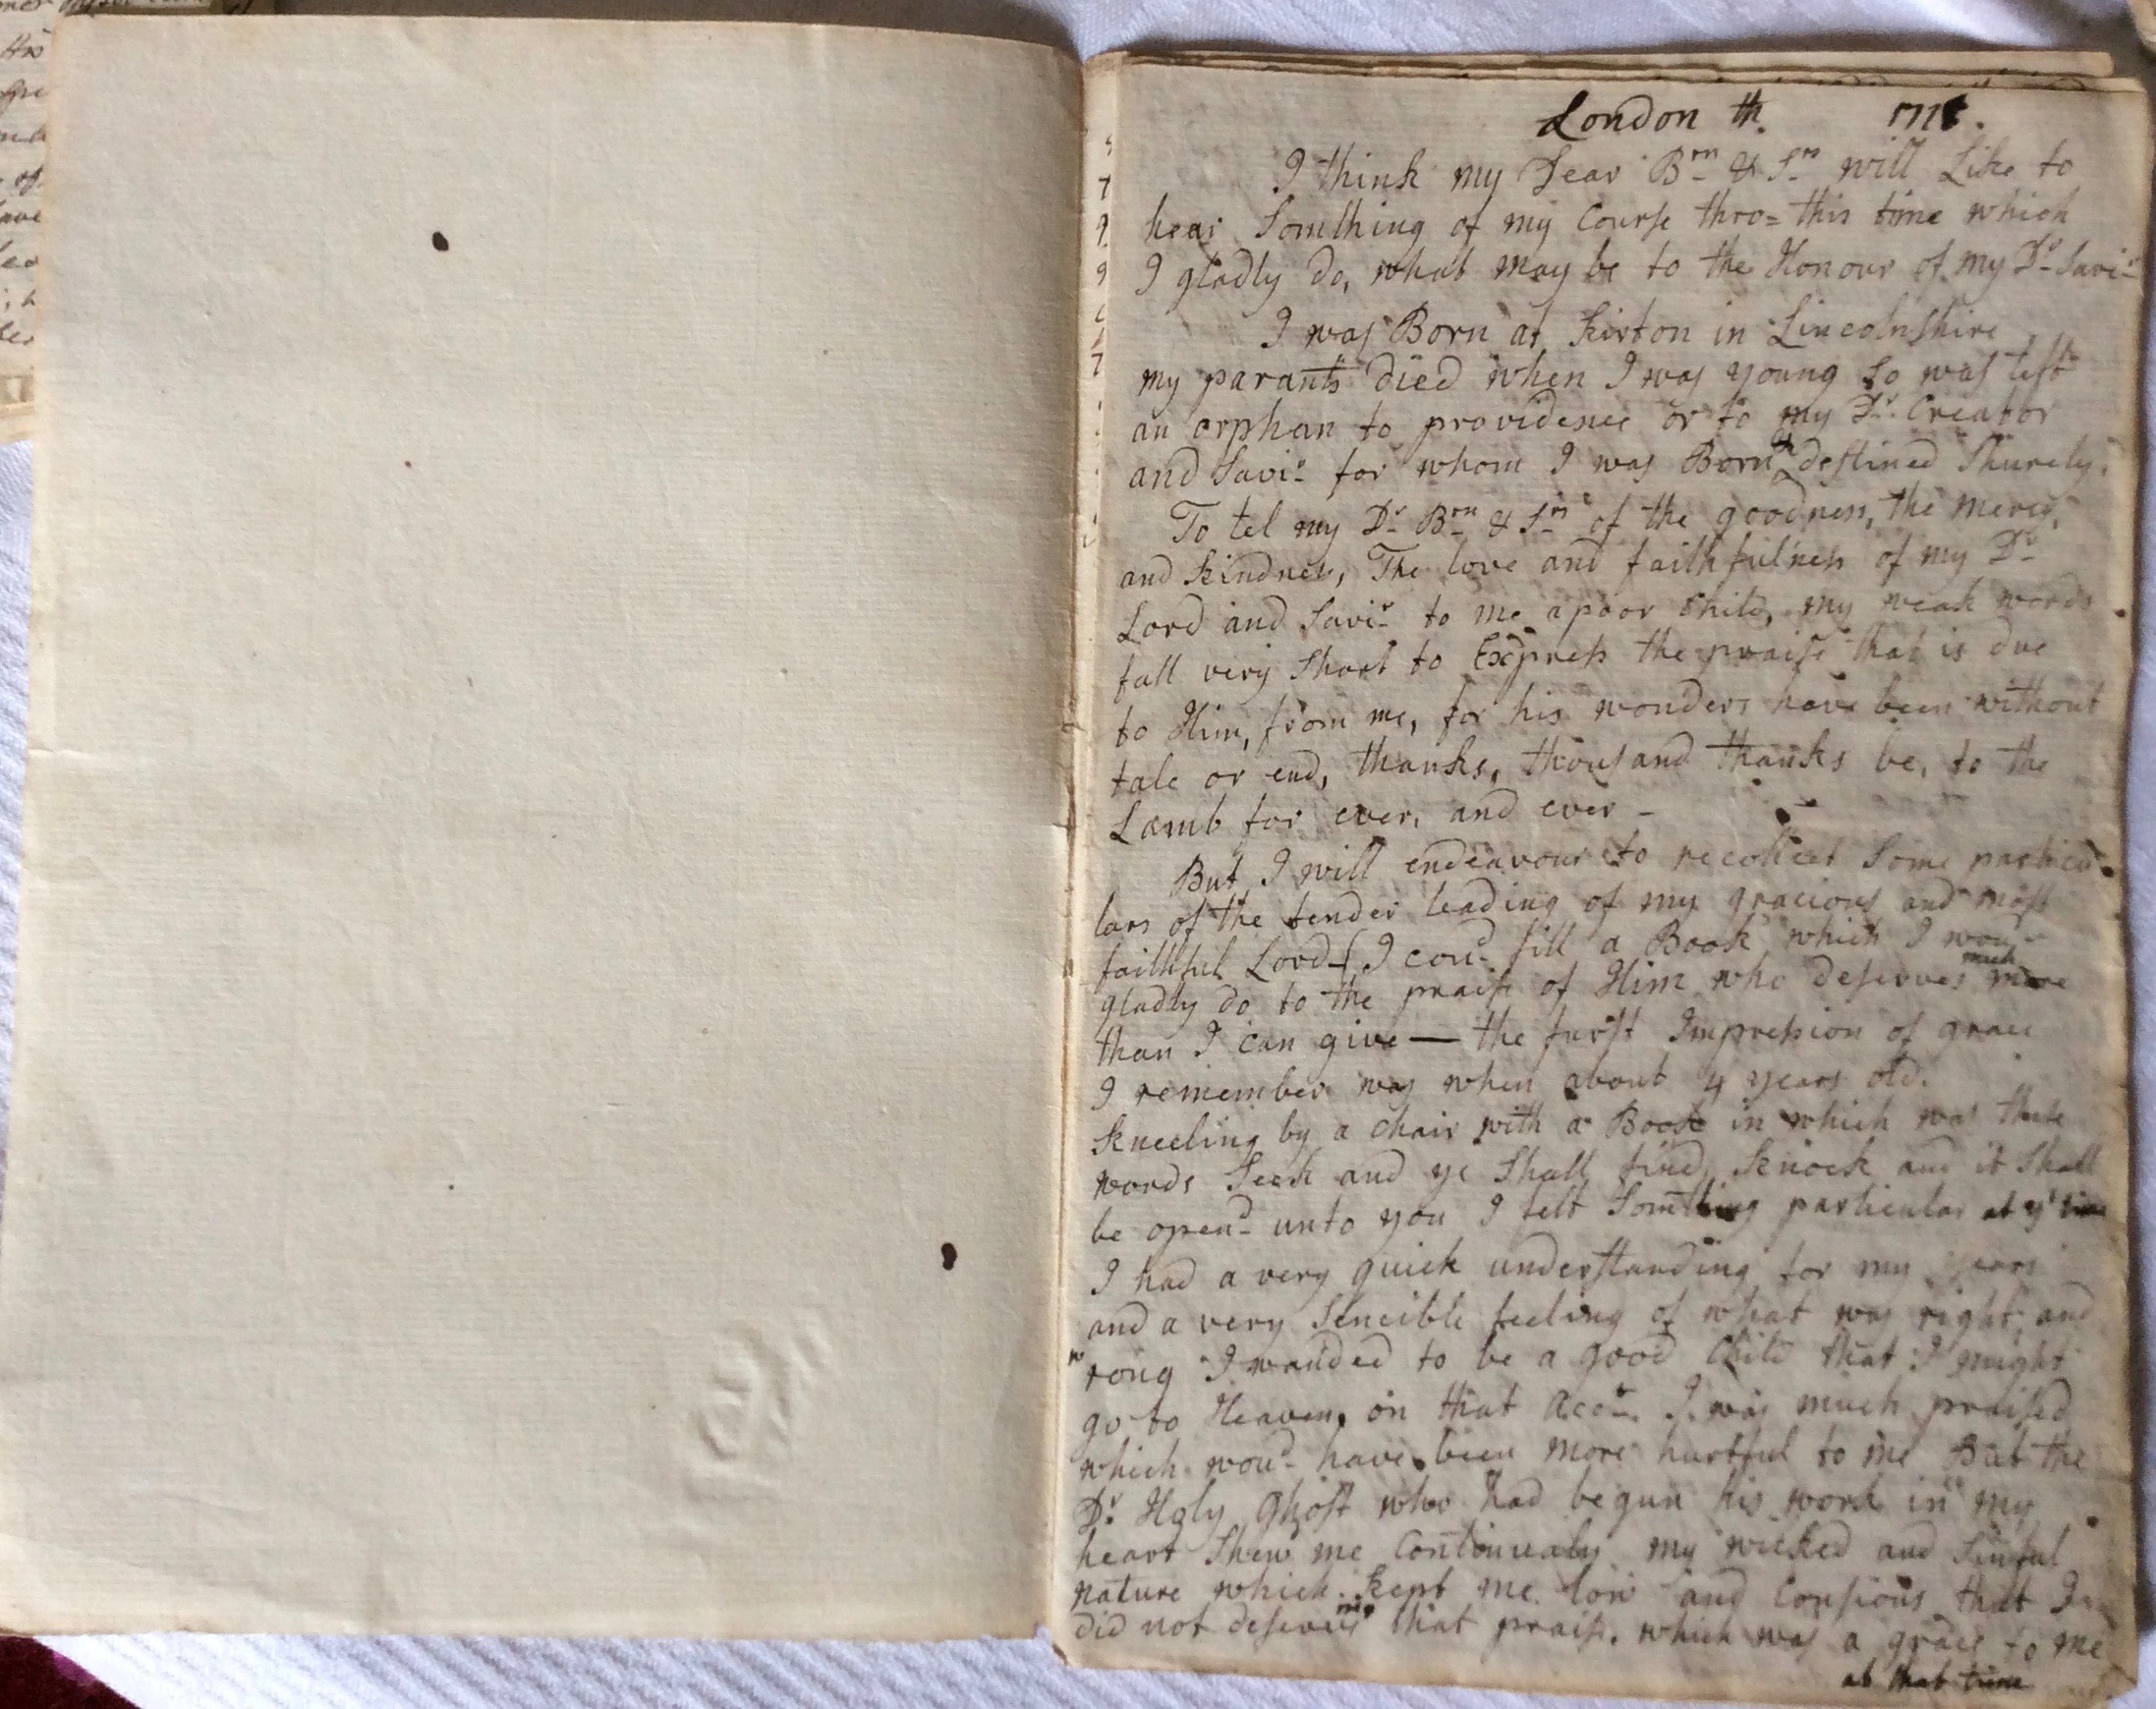 London th.
I think my Dear Brn & Srs will Like to
hear Somthing of my Course thro= this time which
I gladly do, what may be to the Honour of my Dr Savir
I was Born at Kirton in Lincolnshire
my parants died when I was young so was left
an orphan to providence or to my Dr. Creator
and Savir for whom I was Born & destined Shurely.
To tel my Dr Brn & Srs of the goodness, the mercy,
and kindness, The love and faithfulness of my Dr
Lord and Savir to me a poor Child, my weak words
fall very Short to Express the praise that is due
to Him, from me, for his wonders have been without
tale or end, thanks, thousand thanks be, to the
Lamb for ever, and ever -
But I will endeavour to recollect Some particu-
lars of the tender leading of my gracious and most
faithful Lord I coud fill a Book which I woud
gladly do to the praise of Him who deserves much more
than I can give — the furst Impression of grace
I remember was when about 4 years old.
kneeling by a chair with a Book in which was these
words Seek and ye Shall find, knock and it Shall
be opend unto you I felt Somthing particular at yt time
I had a very quick understanding for my years
and a very Sencible feeling of what was right and
wrong I wanded to be a good Child that I might
go to Heaven, on that Accot. I was much praised
which woud have been more hurtful to me But the
Dr. Holy Ghost who had begun his work in my
heart Shew me Continuealy my wicked and Sinful
nature which kept me low and Consious that I
did not deserve that praise. which was a grace to me
at that time